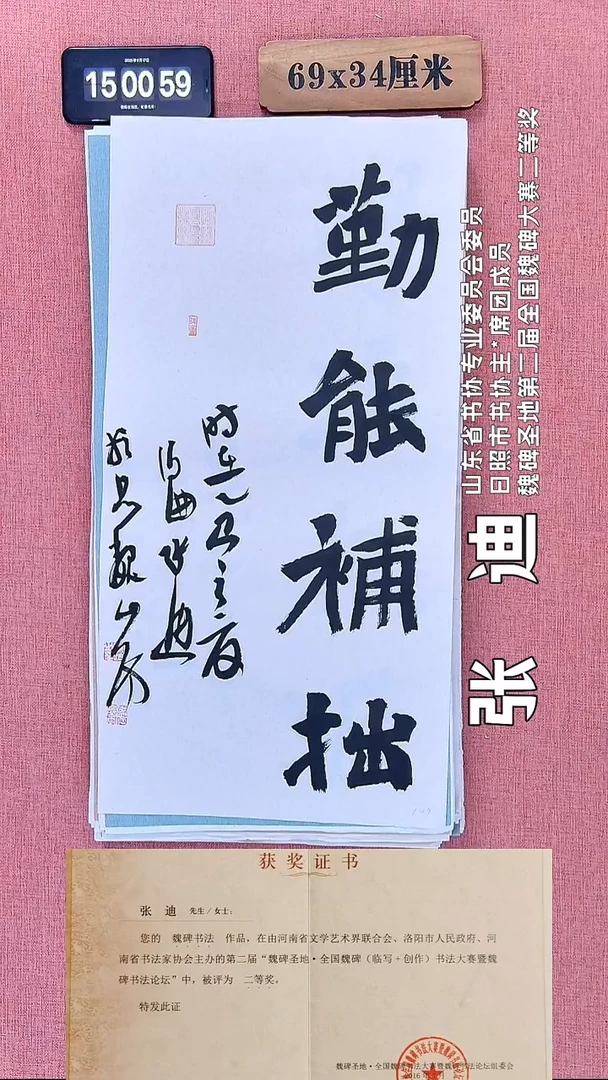 15 00 59
69x34厘米
勤能補拙
山东省书协专业委员会委员
日照市书协主*席团成员
魏碑圣地第二届全国魏碑大赛二等奖
张迪
获奖证书
张 迪 先生/女士:
您的 魏碑书法 作品,在由河南省文学艺术界联合会、洛阳市人民政府、河
南省书法家协会主办的第二届“魏碑圣地·全国魏碑(临写+创作)书法大赛暨魏
碑书法论坛”中,被评为 二等奖。
特发此证
魏碑圣地·全国魏碑书法大赛暨魏碑书法论坛组委会